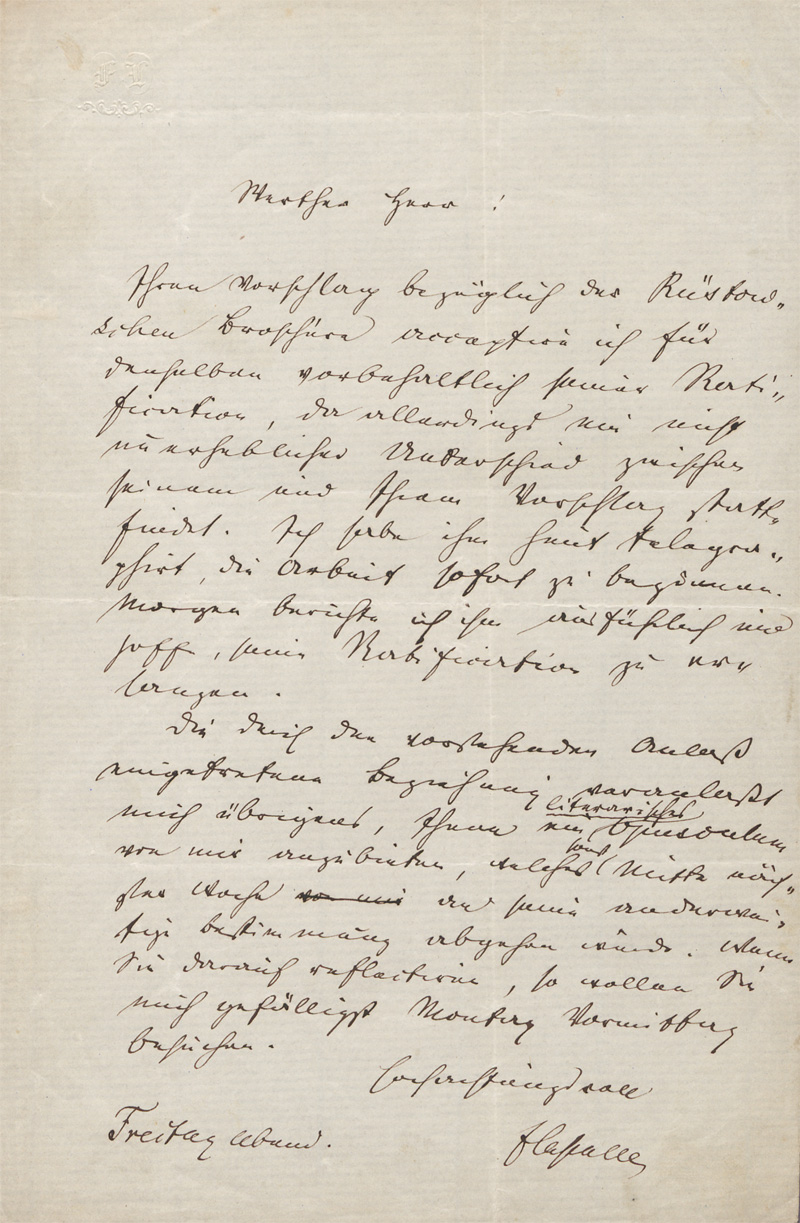 FL
Werther Herr!
Ihren Vorschlag bezüglich der Rüstow-
schen Broschüre acceptire ich für
denselben vorbehaltlich seiner Rati-
fication, da allerdings ein nicht
unerheblicher Unterschied zwischen
seinem und Ihrem Vorschlag statt-
findet. Ich habe ihm heut telegra-
phirt, die Arbeit sofort zu beginnen.
Morgen berichte ich ihm ausführlich und
hoffe, seine Ratification zu er-
langen.
Die durch den vorstehenden Anlaß
eingetretene Beziehung veranlaßt
mich übrigens, Ihnen ein literarisches Opusculum
von mir anzubieten, welches sonst Mitte näch-
ster Woche von mir an seine anderwei-
tige Bestimmung abgehen würde. Wenn
Sie darauf reflectiren, so wollen Sie
mich gefälligst Montag Vormittag
besuchen.
Hochachtungsvoll
Freitag Abend.
FLassalle